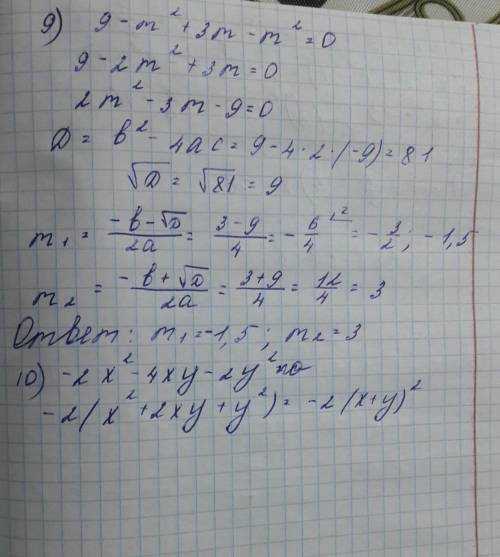 9) 9 - m² + 3m - m² = 0
9 - 2m² + 3m = 0
2m² - 3m - 9 = 0
D = b² - 4ac = 9 - 4 · 2 · (-9) = 81
√D = √81 = 9
m₁ = (-b - √D)/2a = (3 - 9)/4 = - 6/4 = - 3/2 ; -1,5
m₂ = (-b + √D)/2a = (3 + 9)/4 = 12/4 = 3
Ответ: m₁ = -1,5 ; m₂ = 3
10) -2x² - 4xy - 2y²
-2(x² + 2xy + y²) = -2(x+y)²